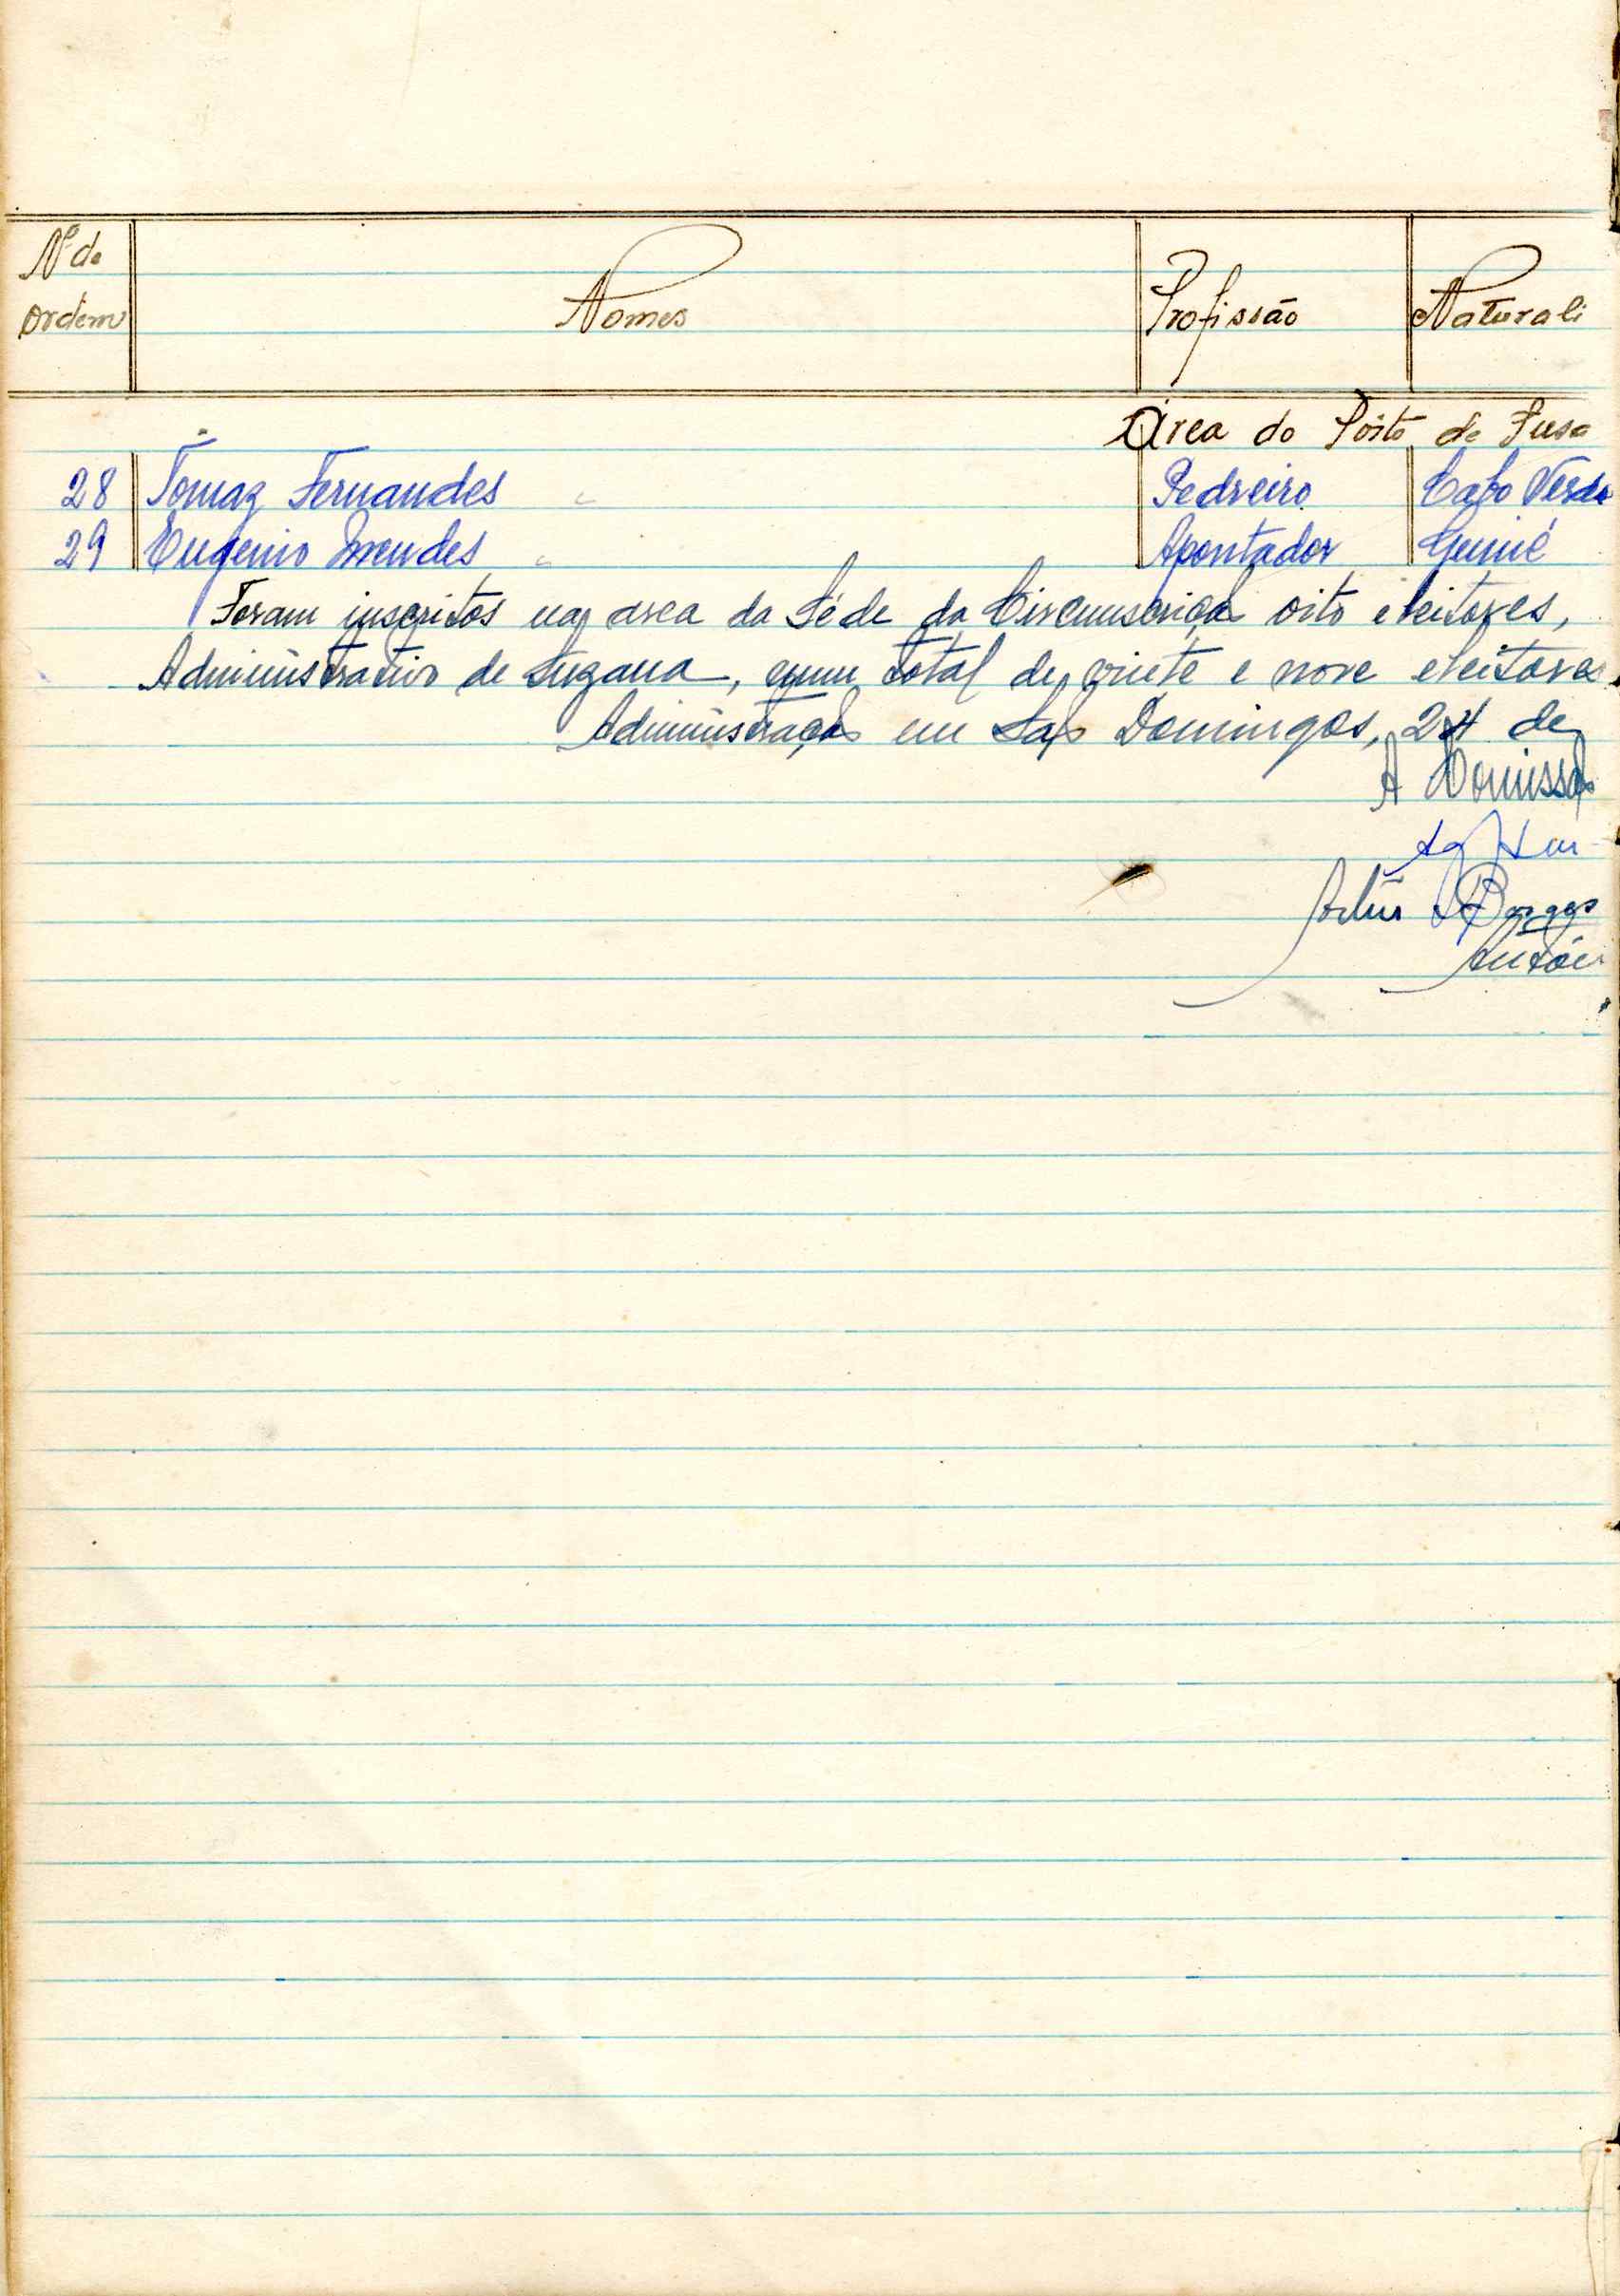 Nº de ordem
Nomes
Profissão
Naturali
Área do Pôsto de Susa
28 Tomaz Fernandes Pedreiro Cabo Verde
29 Eugenio Mendes Apontador Guiné
Foram inscritos na area da Séde da Circunscrição oito eleitores,
Administrativo de Suzana, num total de vinte e nove eleitores.
Administração em São Domingos, 24 de
A Comissão
Artur Borges
Antóni